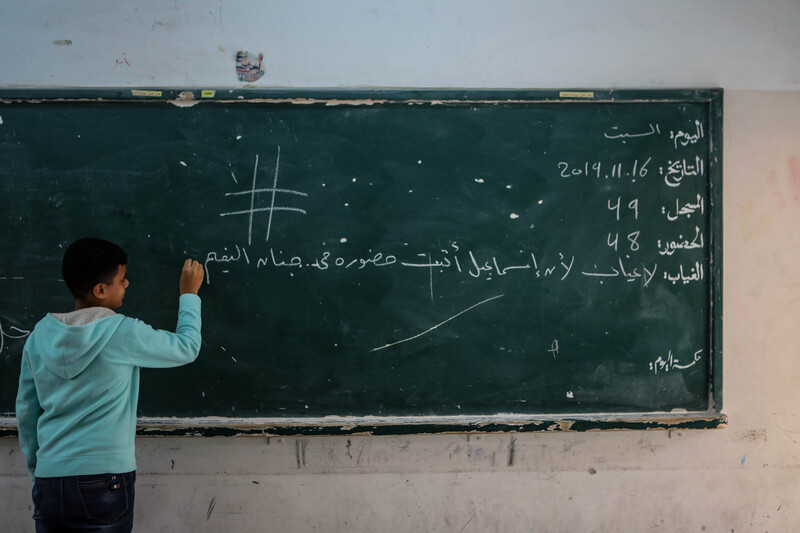 اليوم: السبت
التاريخ: 2019.11.16
السجل: 49
الحضور: 48
الغياب: لا غياب لأن إسماعيل أثبت حضوره في جنان النعيم
حكمة اليوم: